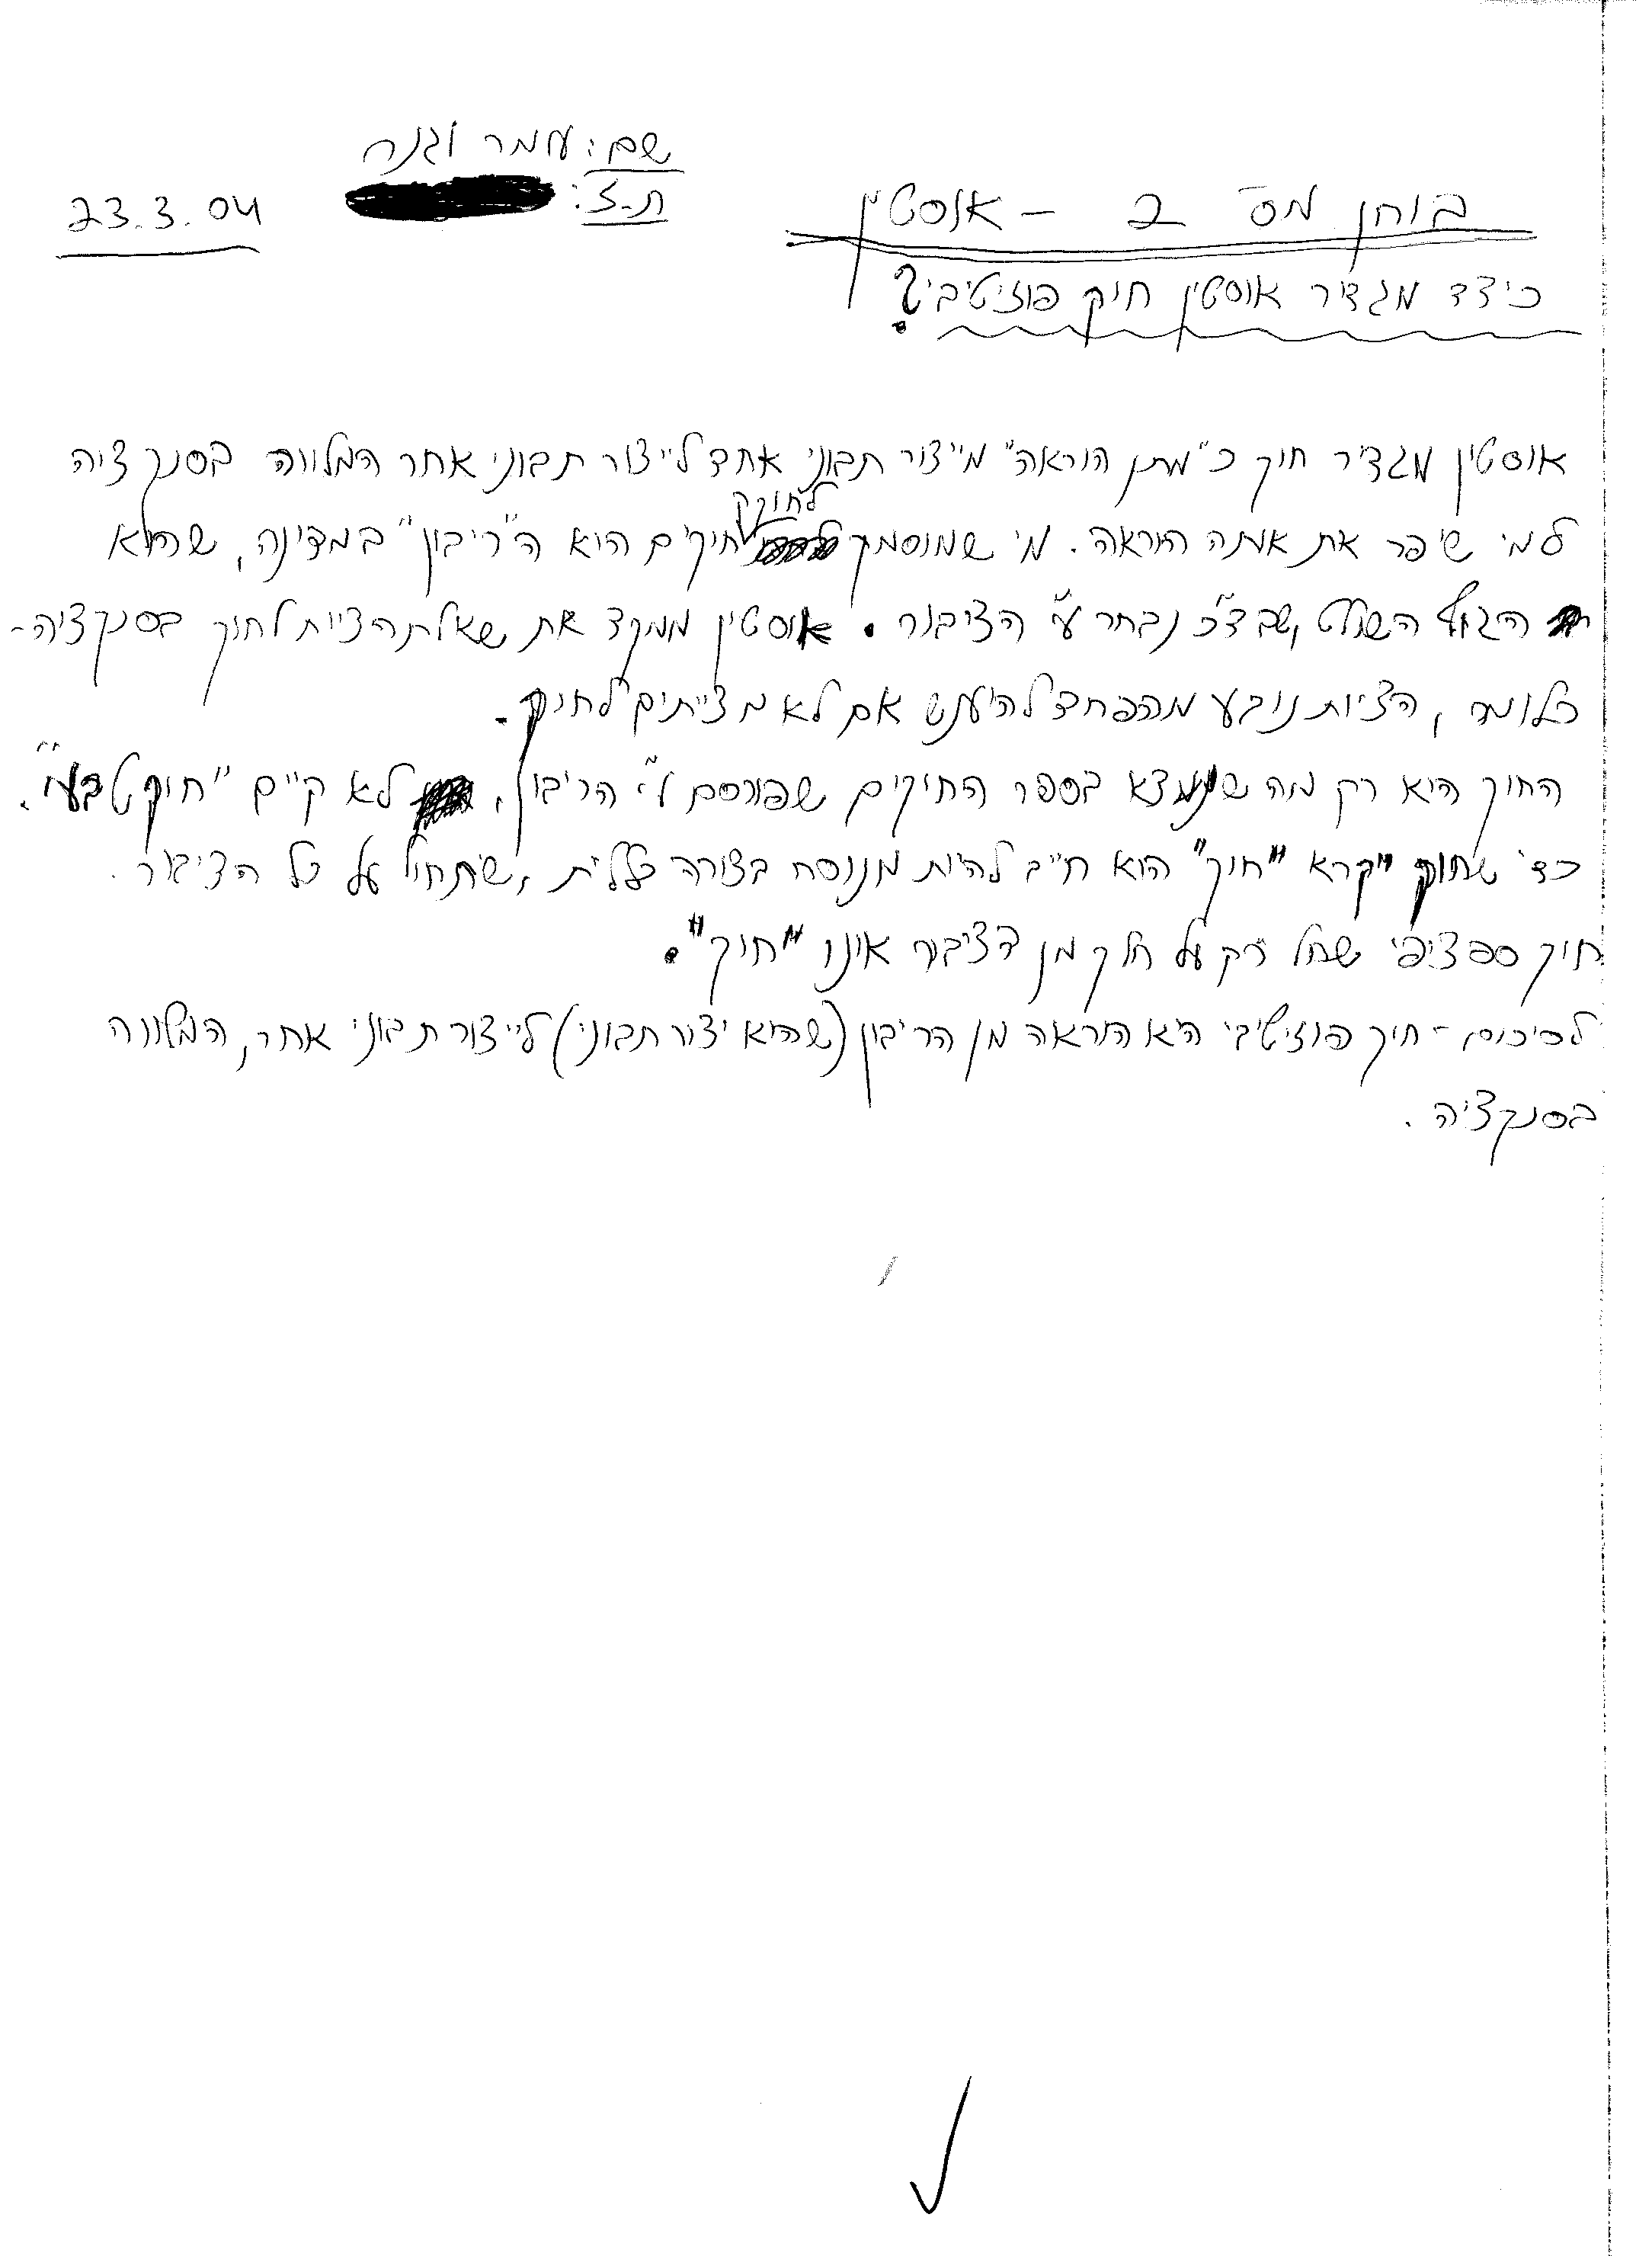 שם: עומר וגנר
ת.ז:
23.3.04
בוחן מס' 2 - אוסטין
כיצד מגדיר אוסטין חוק פוזיטיבי?
אוסטין מגדיר חוק כ"מתן הוראה" מייצור תבוני אחד לייצור תבוני אחר המלווה בסנקציה
למי שיפר את אותה הוראה. מי שמוסמך לחוקק חוקים הוא ה"ריבון" במדינה, שהוא
הגוף השולט, שבד"כ נבחר ע"י הציבור. אוסטין ממקד את שאלת הציות לחוק בסנקציה -
כלומר, הציות נובע מהפחד להיענש אם לא מצייתים לחוק.
החוק הוא רק מה שנמצא בספר החוקים שפורסם ע"י הריבון, לא קיים "חוק טבעי".
כדי שחוק יקרא "חוק" הוא חייב להיות מנוסח בצורה כללית, שתחול על כל הציבור.
חוק ספציפי שחל רק על חלק מן הציבור אינו "חוק".
לסיכום - חוק פוזיטיבי היא הוראה מן הריבון (שהוא יצור תבוני) לייצור תבוני אחר, המלווה
בסנקציה.